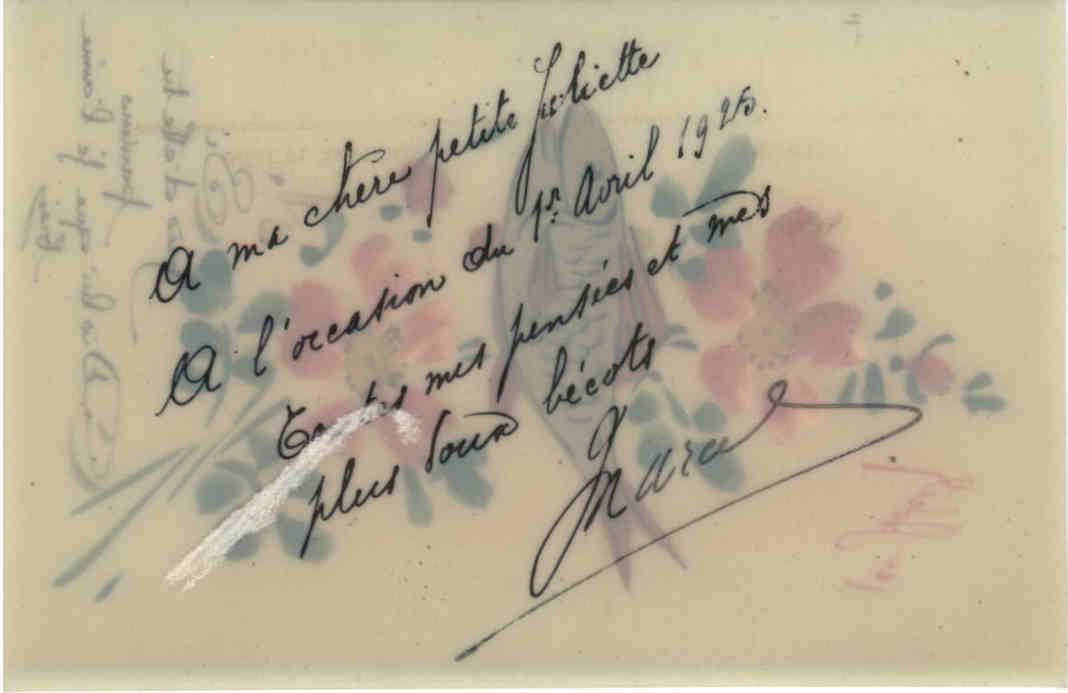 A ma chère petite Juliette
A l'occasion du 1er Avril 1925.
Toutes mes pensées et mes
plus doux bécots
Marcel
1er Avril